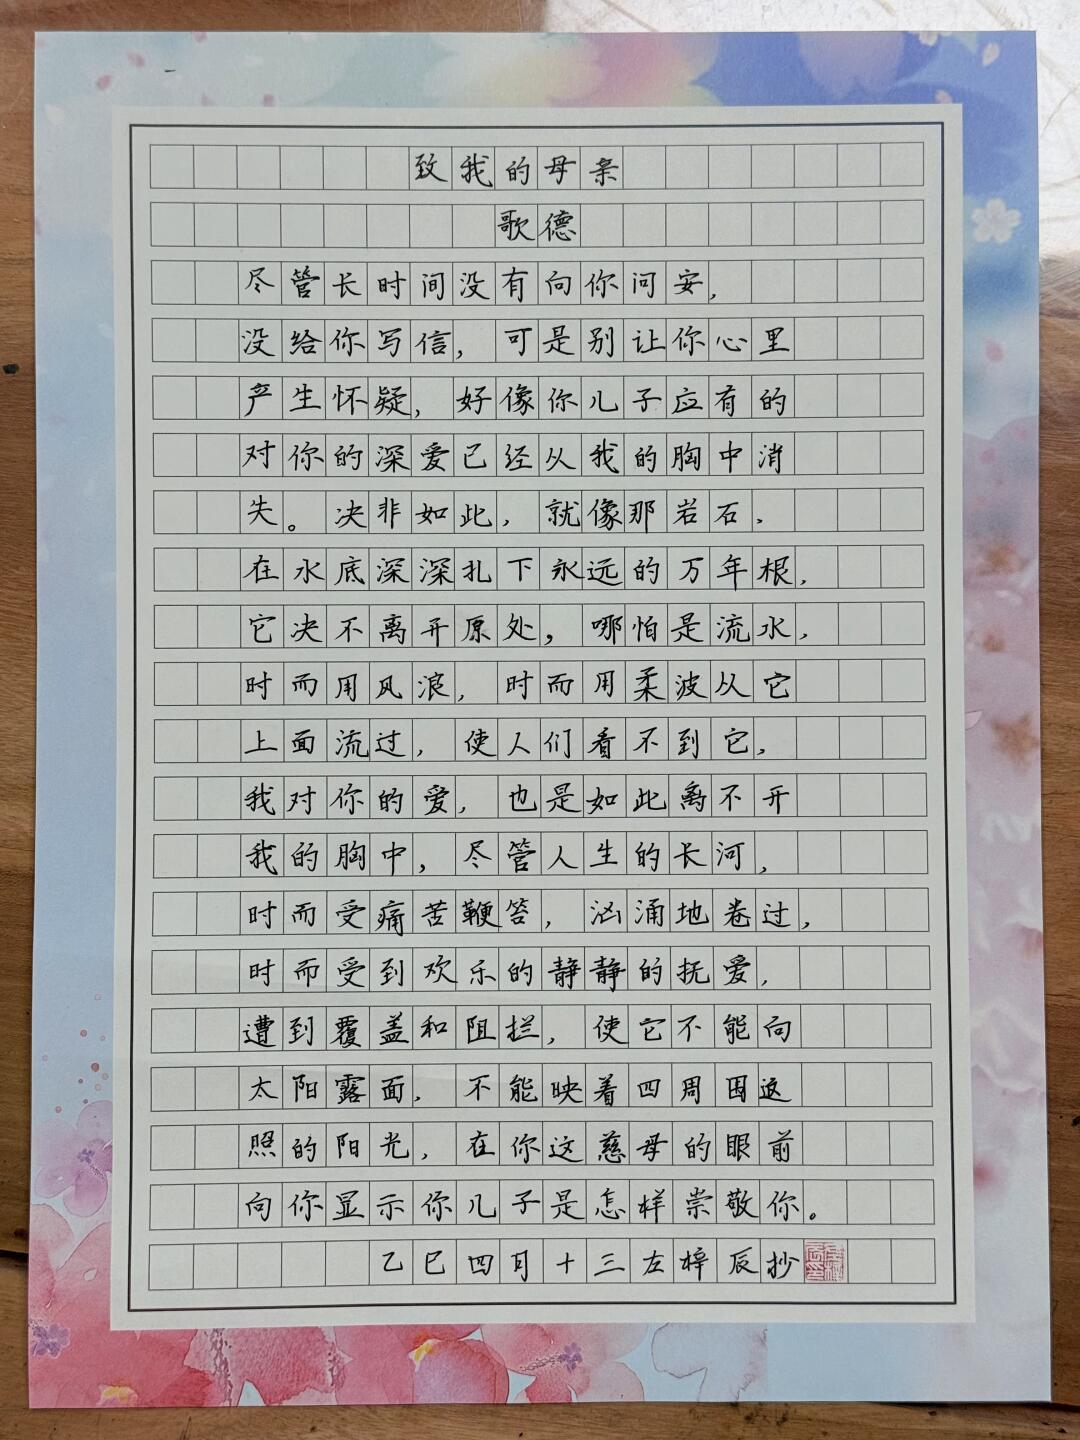 致我的母亲
歌德
尽管长时间没有向你问安，
没给你写信，可是别让你心里
产生怀疑，好像你儿子应有的
对你的深爱已经从我的胸中消
失。决非如此，就像那岩石，
在水底深深扎下永远的万年根，
它决不离开原处，哪怕是流水，
时而用风浪，时而用柔波从它
上面流过，使人们看不到它，
我对你的爱，也是如此离不开
我的胸中，尽管人生的长河，
时而受痛苦鞭笞，汹涌地卷过，
时而受到欢乐的静静的抚爱，
遭到覆盖和阻拦，使它不能向
太阳露面，不能映着四周围返
照的阳光，在你这慈母的眼前
向你显示你儿子是怎样崇敬你。
乙巳四月十三左梓辰抄